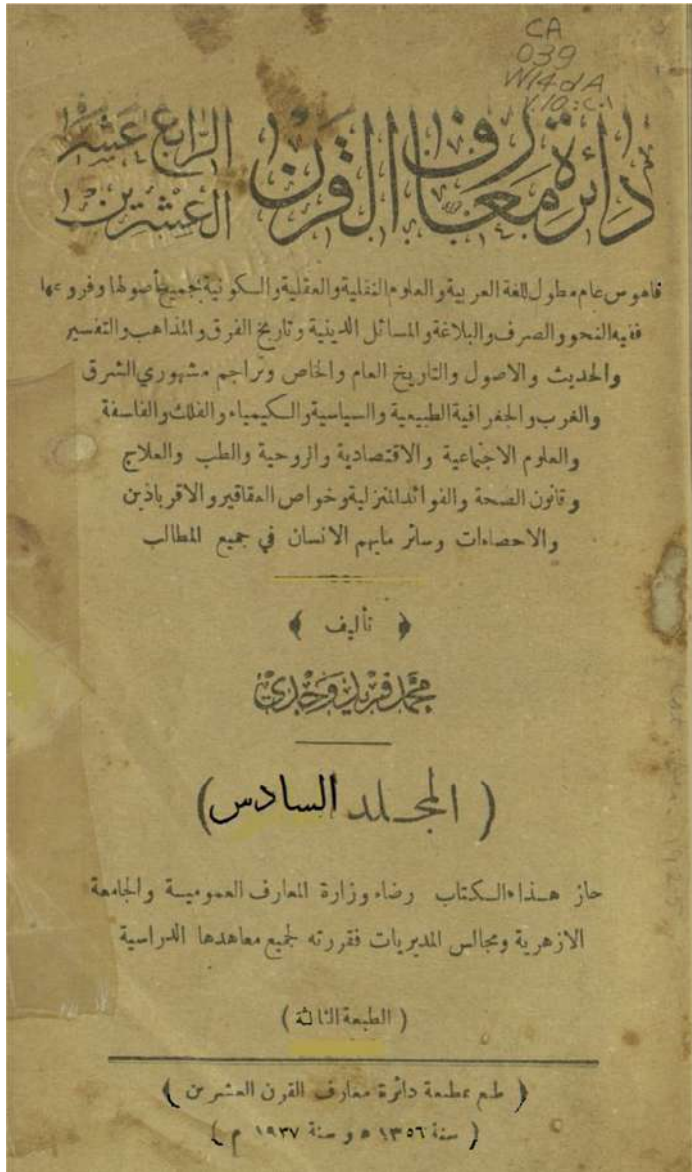 CA
039
W14dA
v.10:c.1
دائرة معارف القرن الرابع عشر
العشرين
قاموس عام مطول للغة العربية والعلوم النقلية والعقلية والكونية بجميع أصولها وفروعها
ففيه النحو والصرف والبلاغة والمسائل الدينية وتاريخ الفرق والمذاهب والتفسير
والحديث والاصول والتاريخ العام والخاص وتراجم مشهوري الشرق
والغرب والجغرافية الطبيعية والسياسية والكيمياء والفلك والفلسفة
والعلوم الاجتماعية والاقتصادية والروحية والطب والعلاج
وقانون الصحة والفوائد المنزلية وخواص العقاقير والاقرباذين
والاحصاءات وسائر ما يهم الانسان في جميع المطالب
﴿ تأليف ﴾
محمد فريد وجدي
( المجلد السادس )
حاز هذا الكتاب رضاء وزارة المعارف العمومية والجامعة
الازهرية ومجالس المديريات فقررته لجميع معاهدها الدراسية
( الطبعة الثالثة )
﴿ طبع بمطبعة دائرة معارف القرن العشرين ﴾
( سنة ١٣٥٦ ه و سنة ١٩٣٧ م )